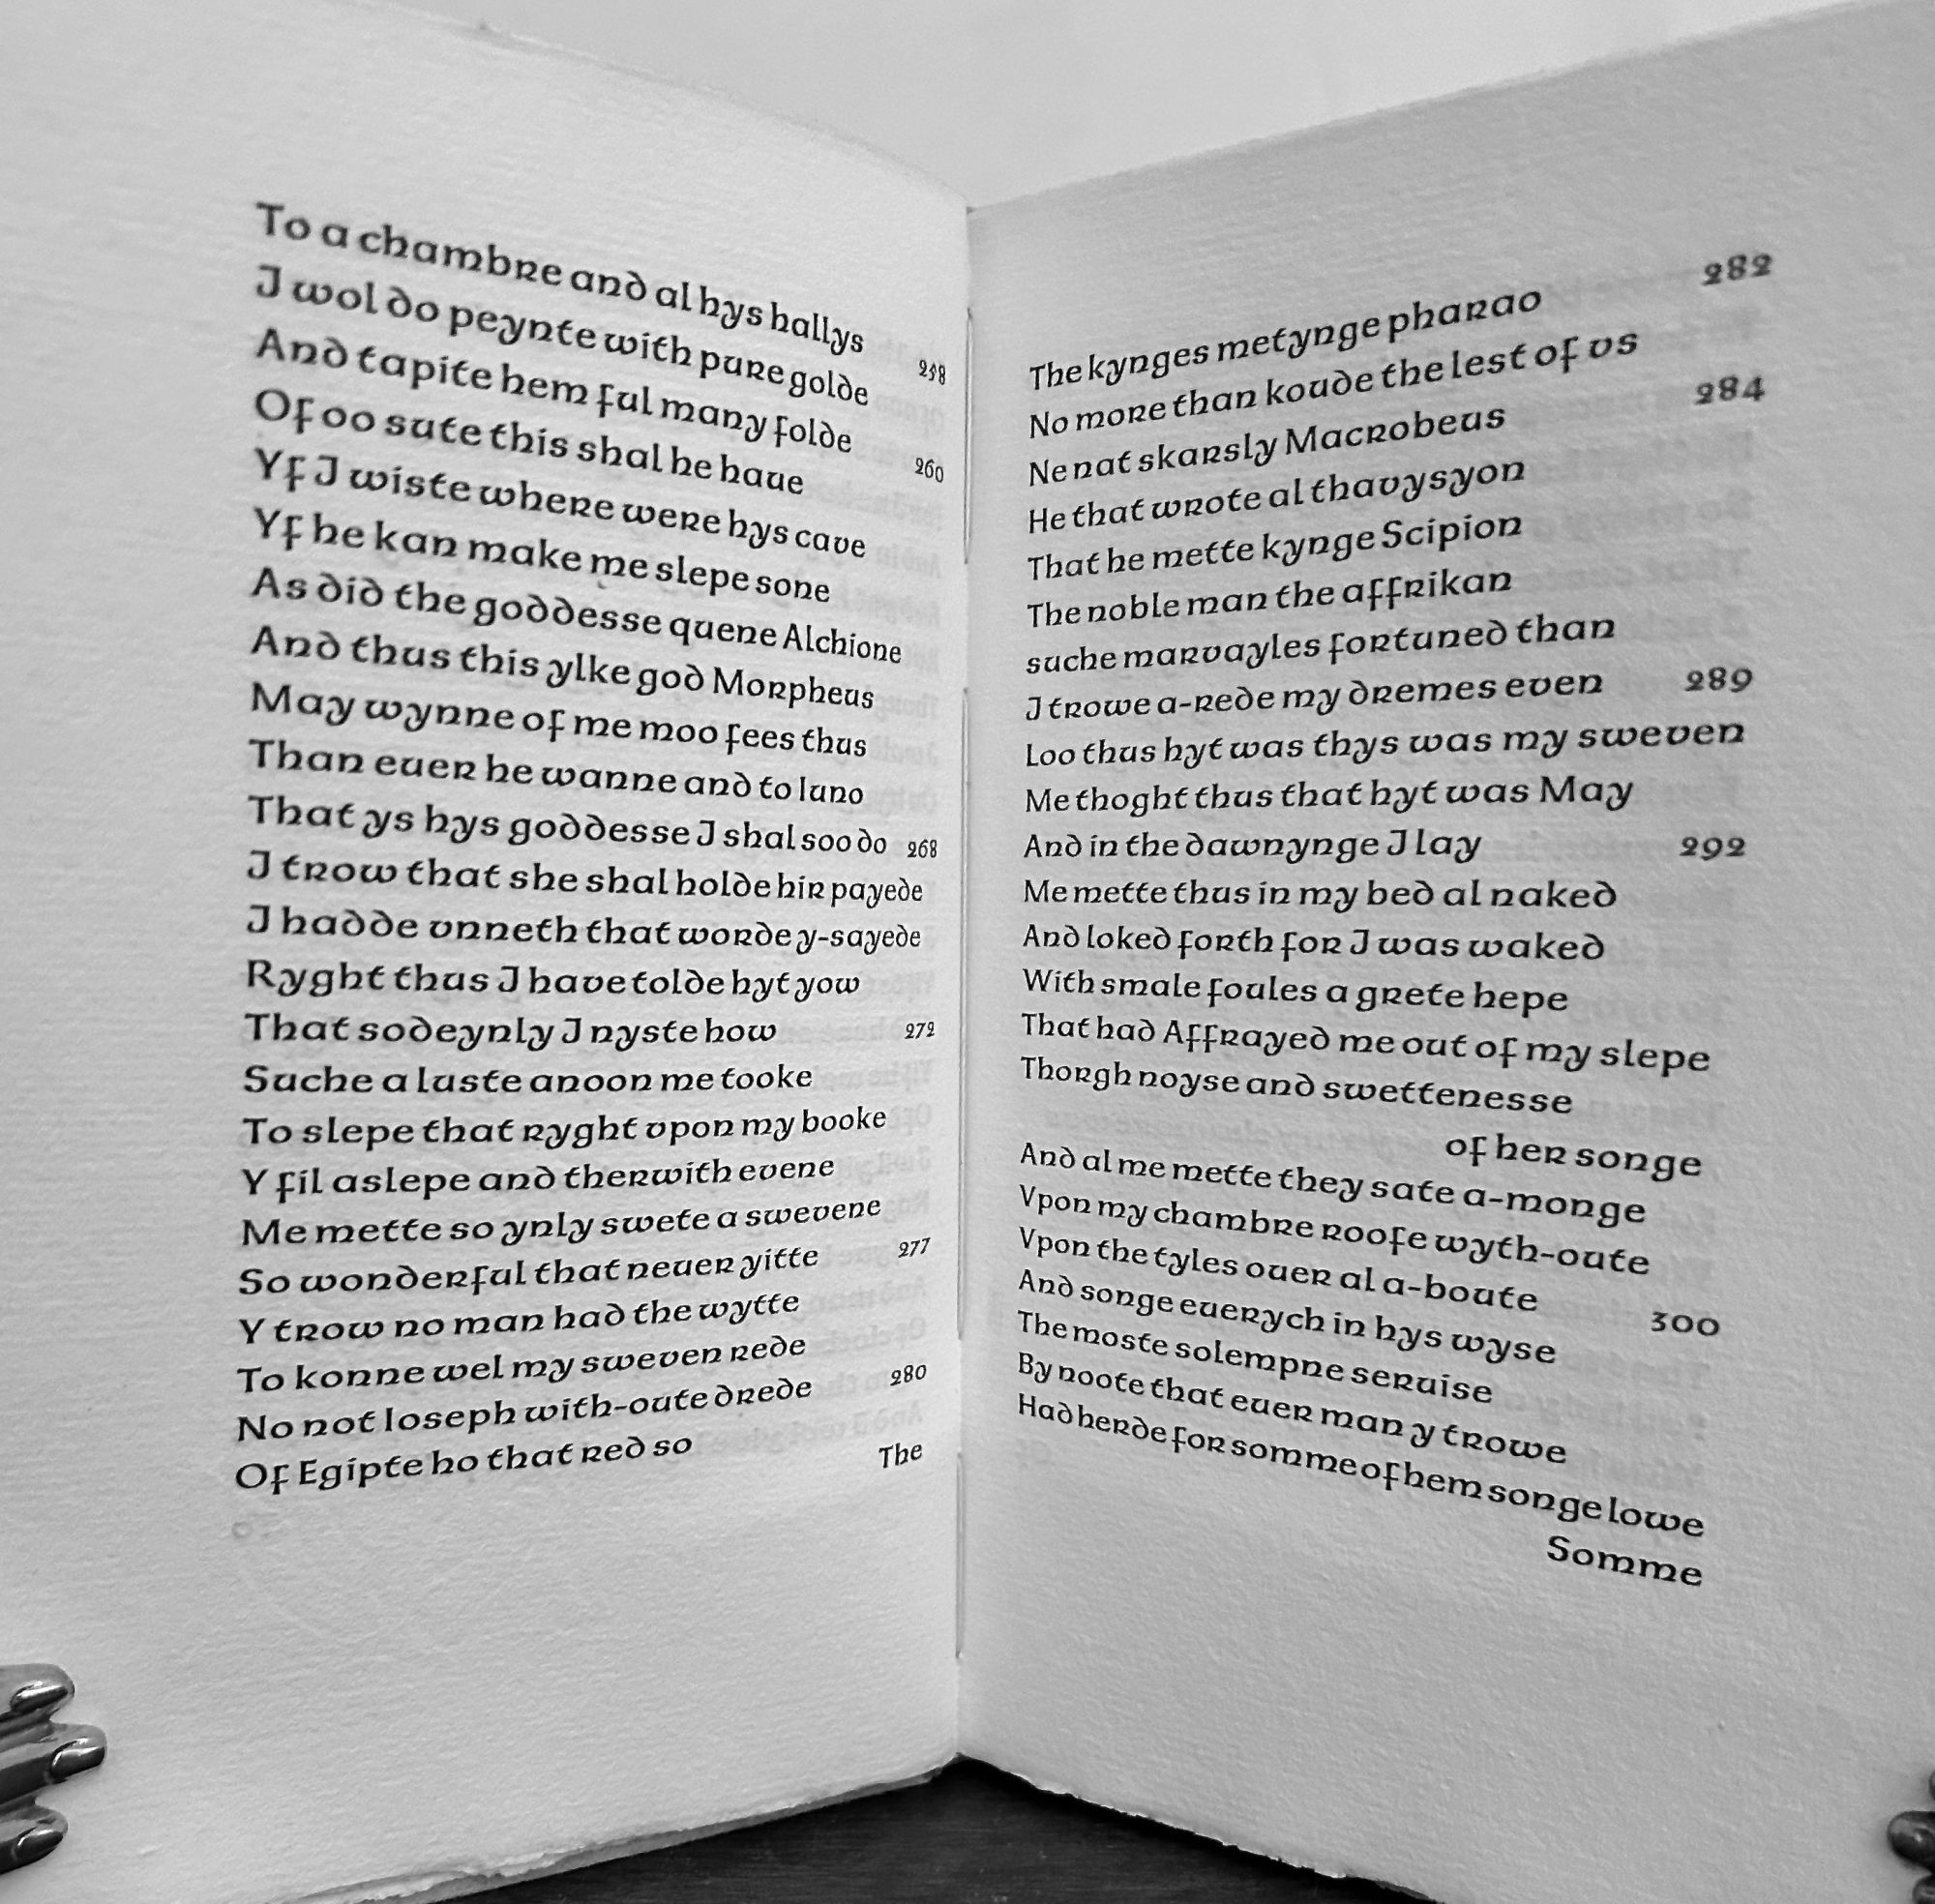 To a chambre and al hys hallys
J wol do peynte with pure golde 258
And tapite hem ful many folde
Of oo sute this shal he haue 260
Yf J wiste where were hys cave
Yf he kan make me slepe sone
As did the goddesse quene Alchione
And thus this ylke god Morpheus
May wynne of me moo fees thus
Than euer he wanne and to Iuno
That ys hys goddesse J shal soo do 268
J trow that she shal holde hir payede
J hadde vnneth that worde y-sayede
Ryght thus J have tolde hyt yow
That sodeynly J nyste how 272
Suche a luste anoon me tooke
To slepe that ryght vpon my booke
Y fil aslepe and therwith evene
Me mette so ynly swete a swevene
So wonderful that neuer yitte 277
Y trow no man had the wytte
To konne wel my sweven rede
No not Ioseph with-oute drede 280
Of Egipte ho that red so
The
The kynges metynge pharao 282
No more than koude the lest of vs
Ne nat skarsly Macrobeus 284
He that wrote al thavysyon
That he mette kynge Scipion
The noble man the affrikan
suche marvayles fortuned than
J trowe a-rede my dremes even 289
Loo thus hyt was thys was my sweven
Me thoght thus that hyt was May
And in the dawnynge J lay 292
Me mette thus in my bed al naked
And loked forth for J was waked
With smale foules a grete hepe
That had Affrayed me out of my slepe
Thorgh noyse and swettenesse
of her songe
And al me mette they sate a-monge
Vpon my chambre roofe wyth-oute
Vpon the tyles ouer al a-boute 300
And songe euerych in hys wyse
The moste solempne seruise
By noote that euer man y trowe
Had herde for somme of hem songe lowe
Somme